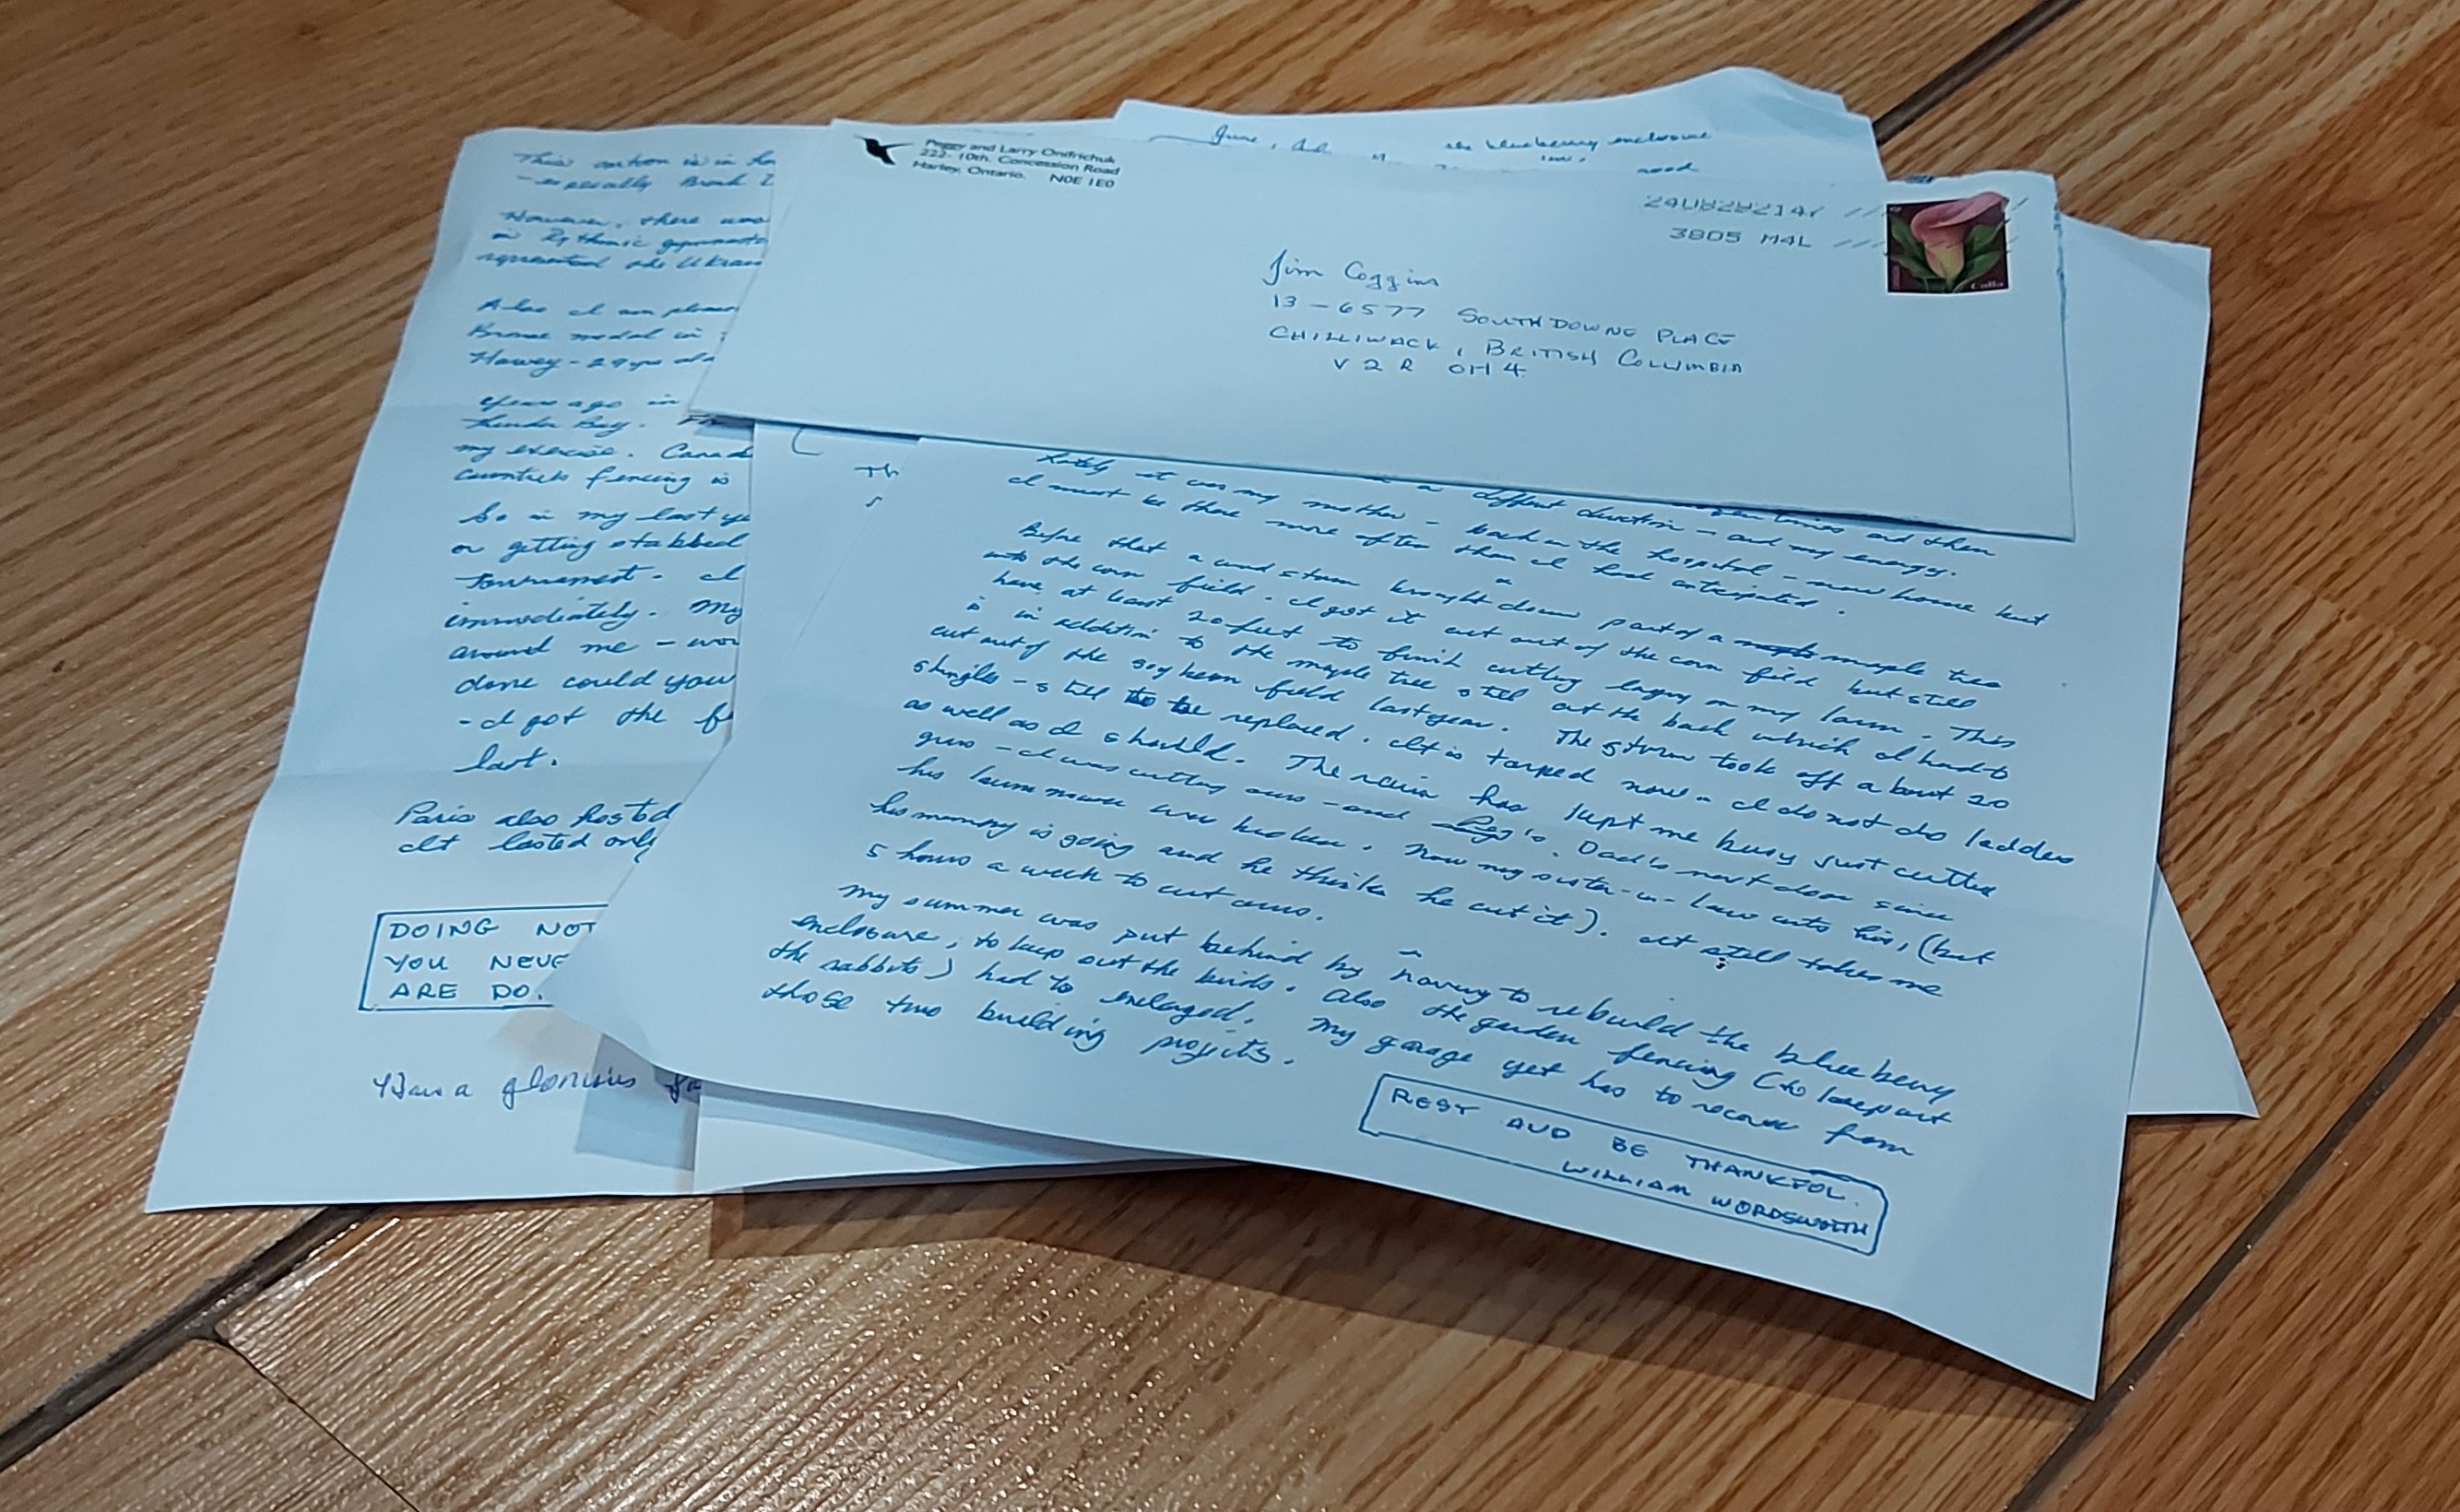 Peggy and Larry Onifrichuk
222- 10th. Concession Road
Harley, Ontario. N0E 1E0
3805 M4L
Jim Coggins
13-6577 SOUTHDOWNE PLACE
CHILLIWACK, BRITISH COLUMBIA
V2R 0H4
Calla
June,
the blueberry enclosure
This section is in
- especially
However, there was
in Rythmic
represented the
Also I am
Bronze medal in
29 yrs
Years ago in
Thunder Bay.
my exercise.
fencing is
So in my last
or getting stabbed
Tournament. I
immediately. My
around me -
done could you
- I got the
last.
Paris also hosted
It lasted only
DOING NOT
YOU NEVE
ARE DO.
Have a glorious
Th
Lately it was my mother - back in the hospital - now home but
I must be there more often than I had anticipated.
in a different direction - and my energy.
and then
Before that a wind storm brought down part of a maple tree
into the corn field. I got it cut out of the corn field but still
have at least 20 feet to finish cutting laying on my lawn. This
is in addition to the maple tree still out the back which I had to
cut out of the soy bean field last year. The storm took off about 20
shingles - still to be replaced. It is tarped now - I do not do ladders
as well as I should. The rain has kept me busy just cutting
grass - I was cutting ours - and Dad's next door since
his lawn mower was broken. Now my sister-in-law cuts his, (but
his memory is going and he thinks he cut it). It still takes me
5 hours a week to cut ours.
My summer was put behind by having to rebuild the blueberry
enclosure, to keep out the birds. Also the garden fencing (to keep out
the rabbits) had to enlarged. My garage yet has to recover from
those two building projects.
REST AND BE THANKFUL.
WILLIAM WORDSWORTH